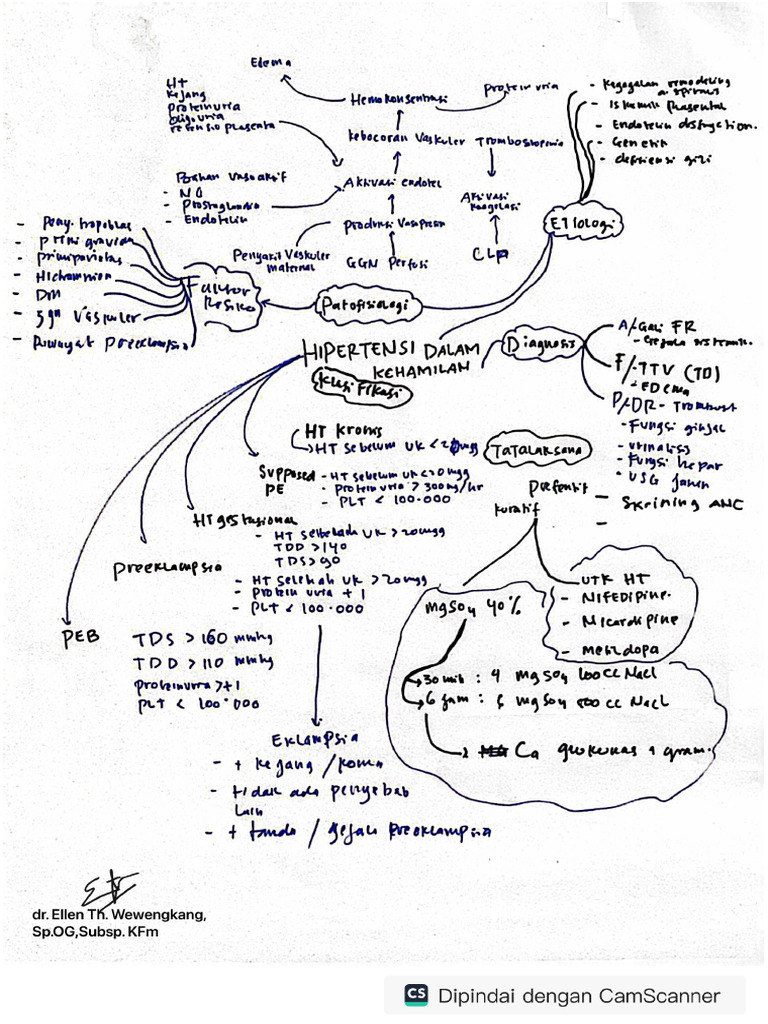 Edema
HT
Kejang
proteinuria
oligouria
retensio plasenta
Hemokonsentrasi
Protein uria
kebocoran vaskuler
Trombositopenia
Bahan vasoaktif
- NO
- Prostaglandin
- Endotelin
Aktivasi endotel
Aktivasi
koagulasi
Produksi
Penyakit Vaskuler
maternal
GGN Perfusi
- Kegagalan remodeling
a. spiralis
- Iskemik plasenta
- Endotelin disfunction.
- Genetik
- defisiensi gizi
ETIologi
- Peny. tropoblas
- primi gravida
- primiparitas
- Hidramnion
- DM
- ggn vaskuler
- Riwayat preeklampsia
Faktor
Resiko
Patofisiologi
HIPERTENSI DALAM
KEHAMILAN
Klasifikasi
Diagnosis
A/
FR
- Gejala
F/-TTV (TD)
- EDema
P/DR- Trombosit
- Fungsi ginjal
- urinalisis
- Fungsi hepar
- USG Janin
HT Kronis
→ HT sebelum UK <20mgg
Supposed
PE
- HT sebelum UK <20mgg
- Protein uria > 300mg/hr
- PLT < 100.000
HT gestasional
- HT setelah UK >20mgg
TDD >140
TDS >90
preeklampsia
- HT setelah UK >20mgg
- protein uria +1
- PLT < 100.000
PEB
TDS > 160 mmHg
TDD > 110 mmHg
proteinuria >+1
PLT < 100.000
Eklampsia
- + kejang / koma
- tidak ada penyebab
lain
- + tanda / gejala preeklampsia
TATAlaksana
Prefentif
- Skrining ANC
kuratif
UTK HT
- NIFEDIPINE.
- Nicardipine
- metildopa
mgSO4 40%
→ 30 mnt : 4 mgSO4 100cc NaCl
→ 6 jam : 6 mgSO4 500cc NaCl
Ca glukonas 1 gram.
dr. Ellen Th. Wewengkang,
Sp.OG,Subsp. KFm
CS Dipindai dengan CamScanner